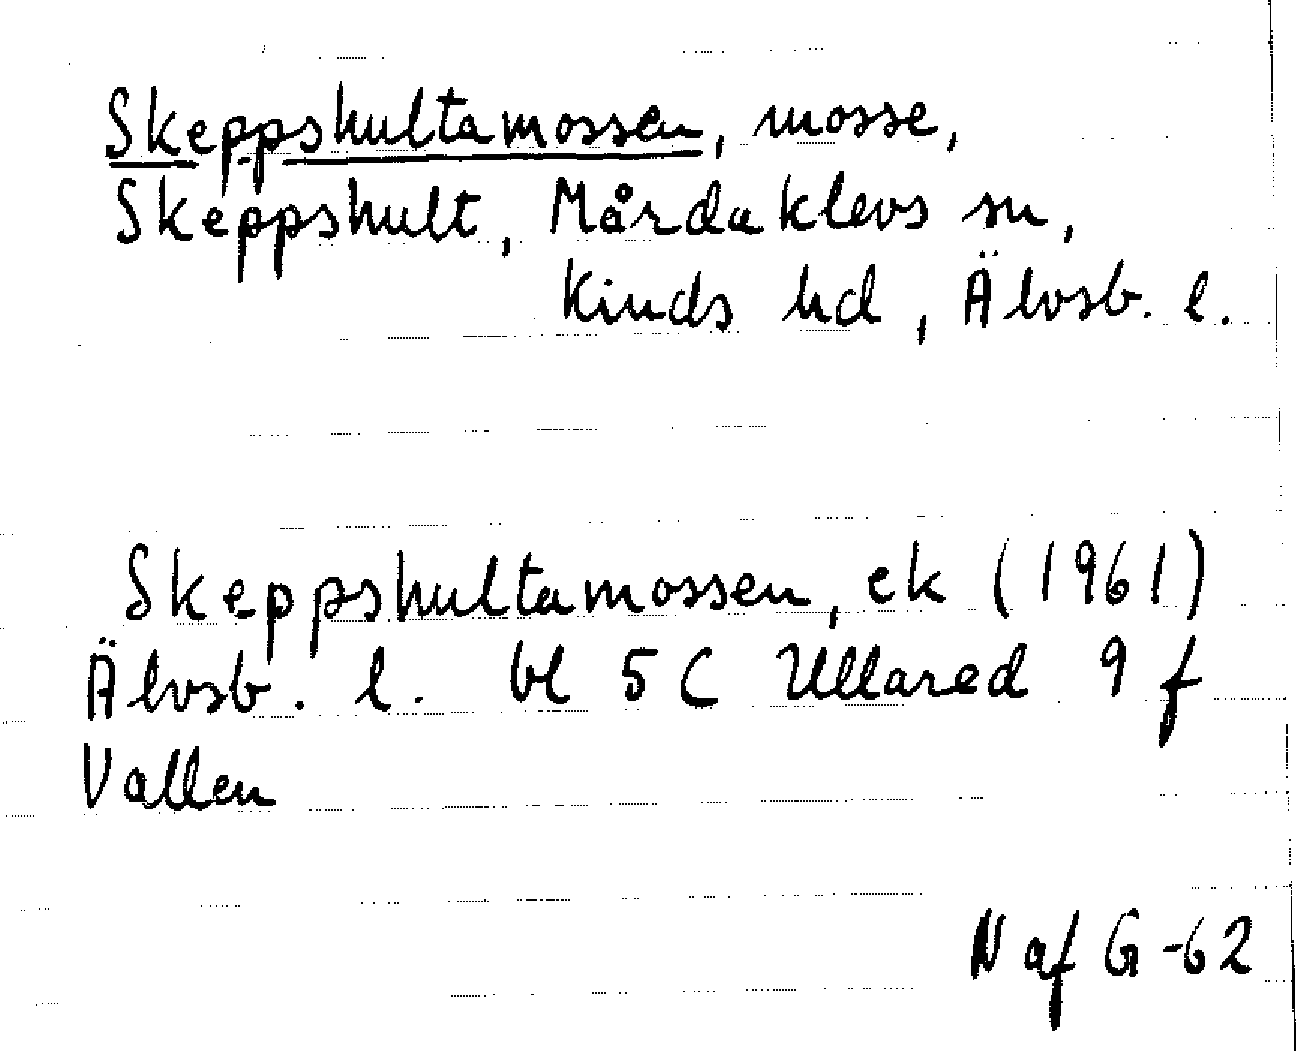 Skeppshultamossen, mosse,
Skeppshult, Mårdaklevs sn,
Kinds hd, Älvsb. l.
Skeppshultamossen, ek (1961)
Älvsb. l. bl 5 C Ullared 9 f
Vallen
N af G -62